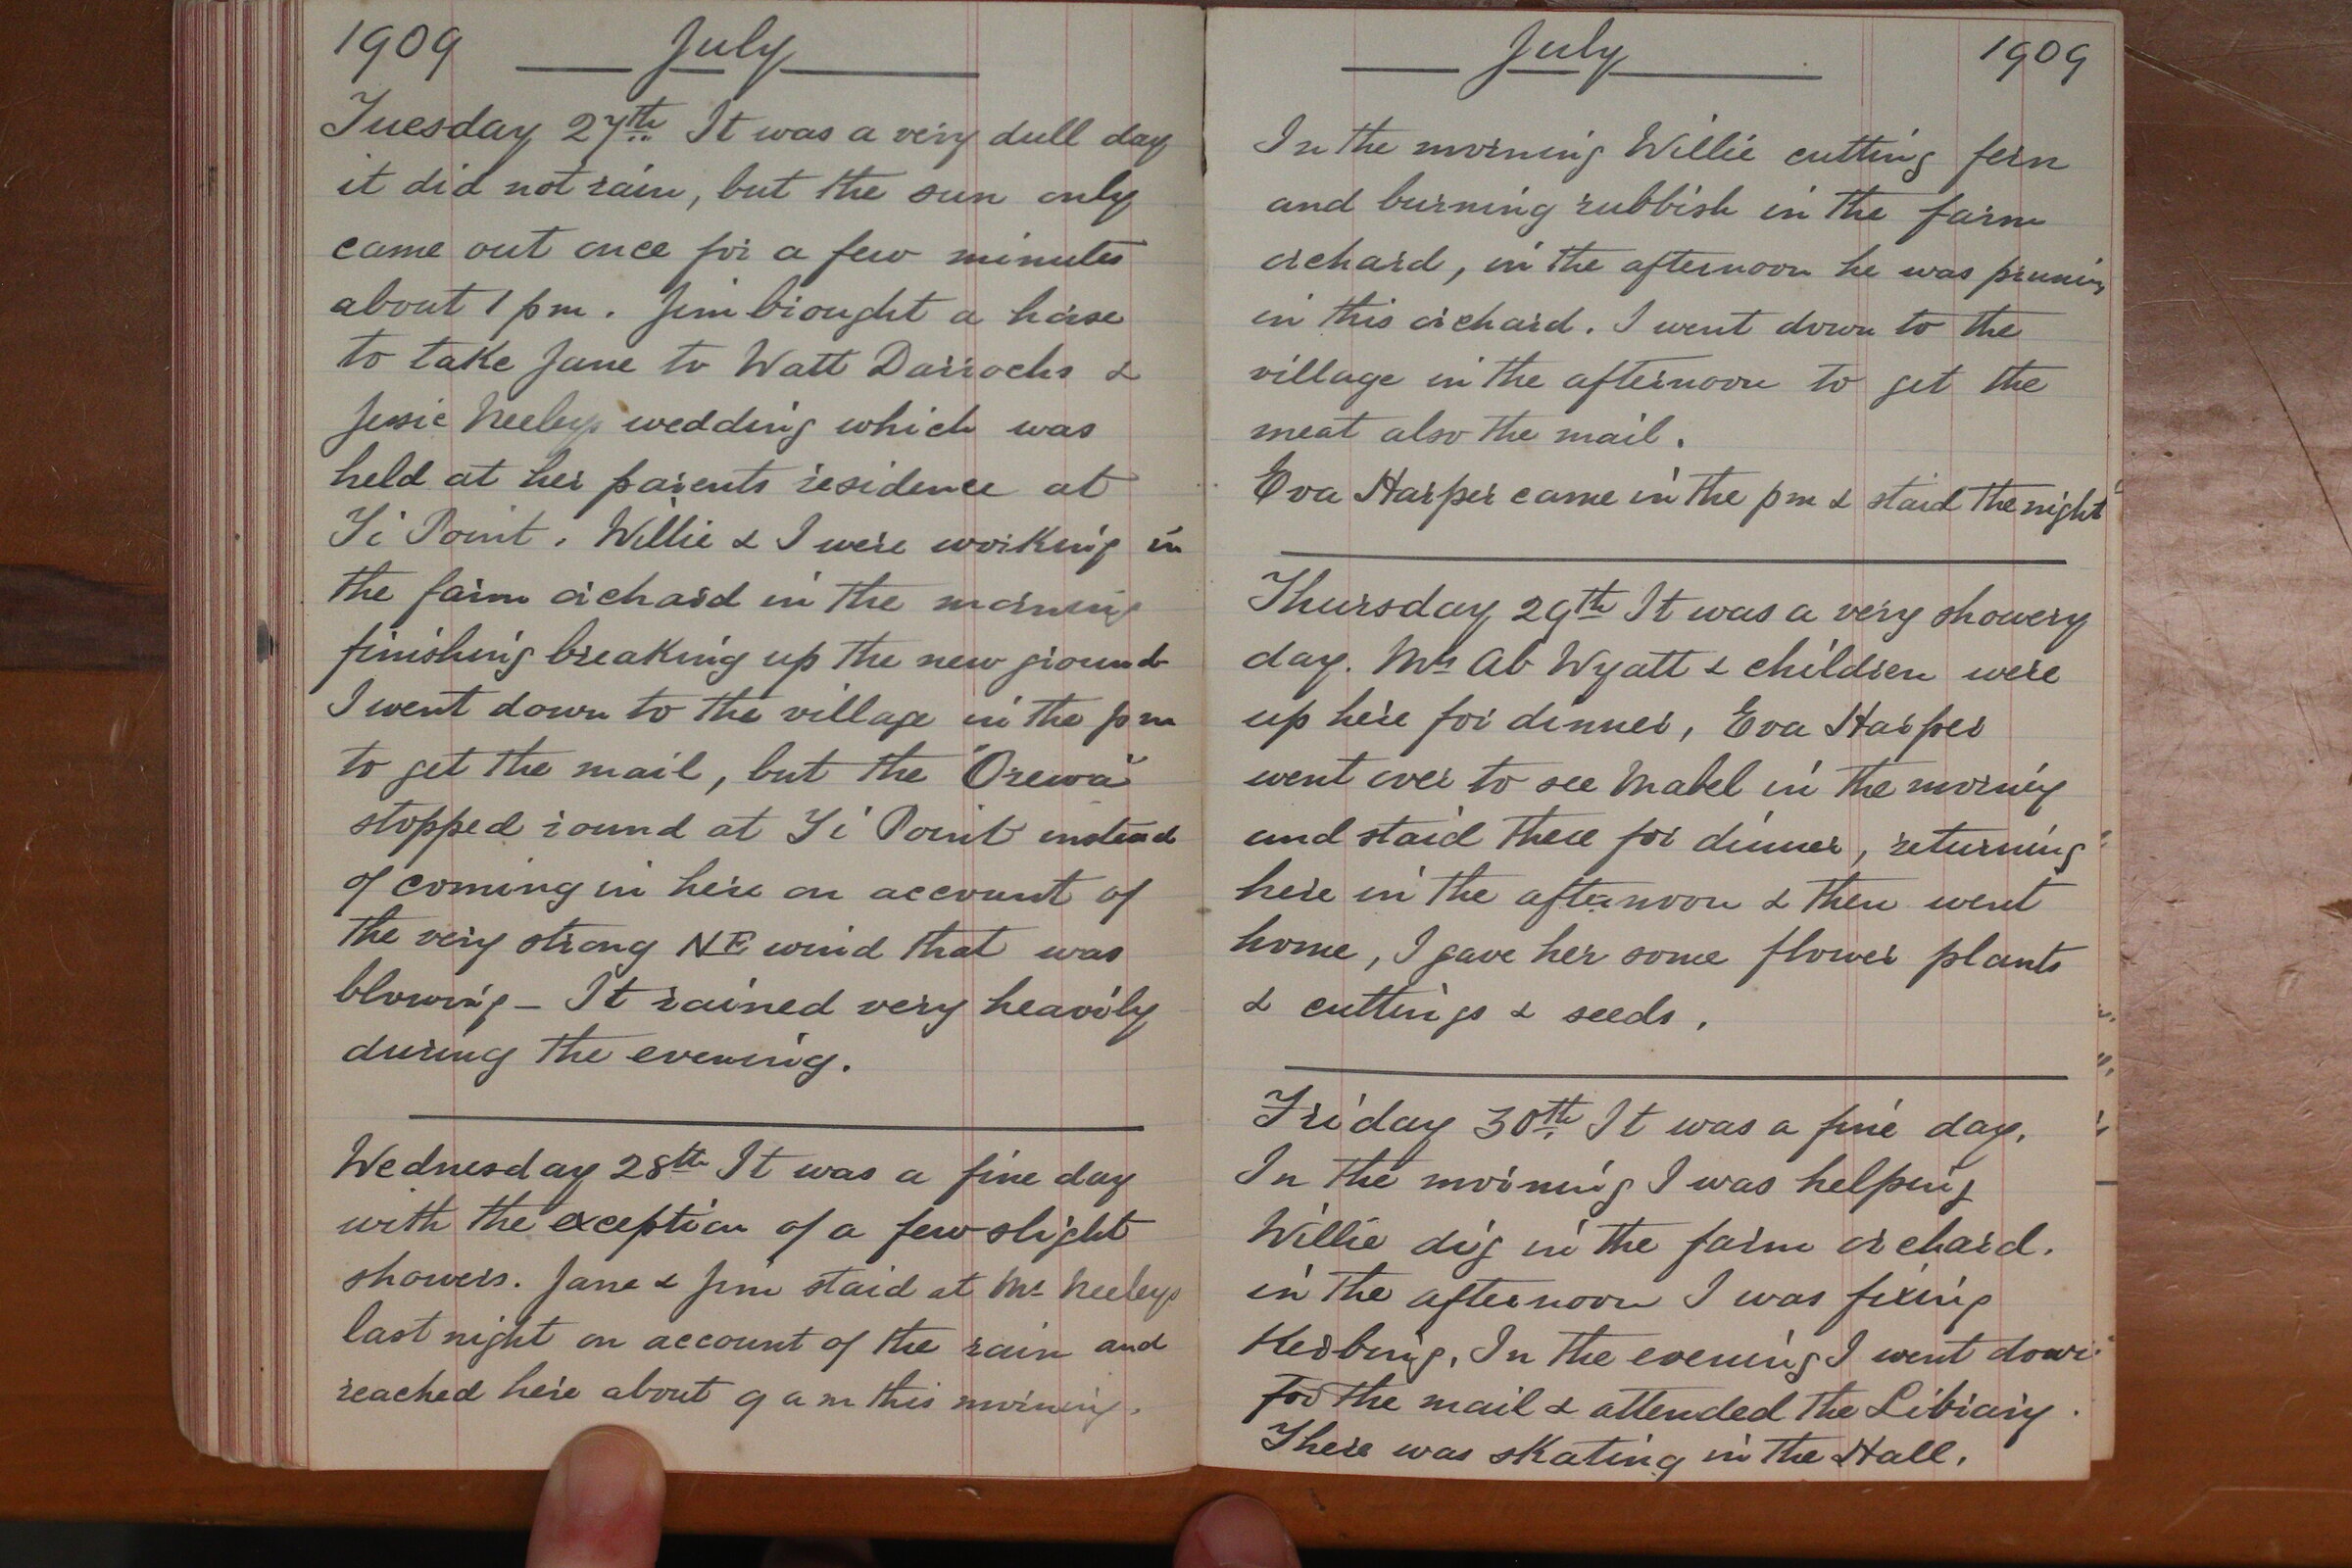 1909 July
Tuesday 27th It was a very dull day
it did not rain, but the sun only
came out once for a few minutes
about 1 pm. Jim brought a horse
to take Jane to Watt Darrochs &
Jessie Neeleys wedding which was
held at her parents residence at
Ti Point. Willie & I were working in
the farm orchard in the morning
finishing breaking up the new ground
I went down to the village in the pm
to get the mail, but the "Orewa"
stopped round at Ti Point instead
of coming in here on account of
the very strong NE wind that was
blowing - It rained very heavily
during the evening.
Wednesday 28th It was a fine day
with the exception of a few slight
showers. Jane & Jim staid at Mr Neeleys
last night on account of the rain and
reached here about 9 am this morning.
July 1909
In the morning Willie cutting fern
and burning rubbish in the farm
orchard, in the afternoon he was pruning
in this orchard. I went down to the
village in the afternoon to get the
meat also the mail.
Eva Harper came in the pm & staid the night
Thursday 29th It was a very showery
day. Mrs Ab Wyatt & children were
up here for dinner, Eva Harper
went over to see Mabel in the morning
and staid there for dinner, returning
here in the afternoon & then went
home, I gave her some flower plants
& cuttings & seeds.
Friday 30th It was a fine day.
In the morning I was helping
Willie dig in the farm orchard.
in the afternoon I was fixing
Kerbing. In the evening I went down
for the mail & attended the Library.
There was skating in the Hall.